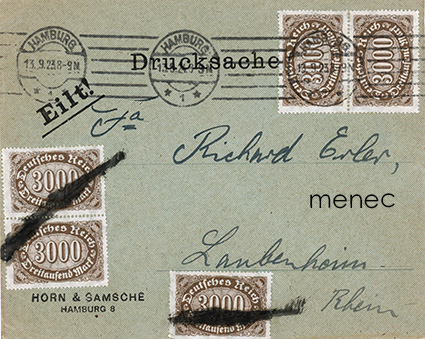 HAMBURG
13.9.23.8-9N
* 1 *
HAMBURG
13.9.23.8-9N
* 1 *
Drucksache
Eilt!
Deutsches Reich
3000
Dreitausend Mark
Deutsches Reich
3000
Dreitausend Mark
Fa
Richard Erler,
menec
Laubenheim
Rhein
Deutsches Reich
3000
Deutsches Reich
3000
Dreitausend Mark
Deutsches Reich
3000
Dreitausend Mark
HORN & SAMSCHE
HAMBURG 8